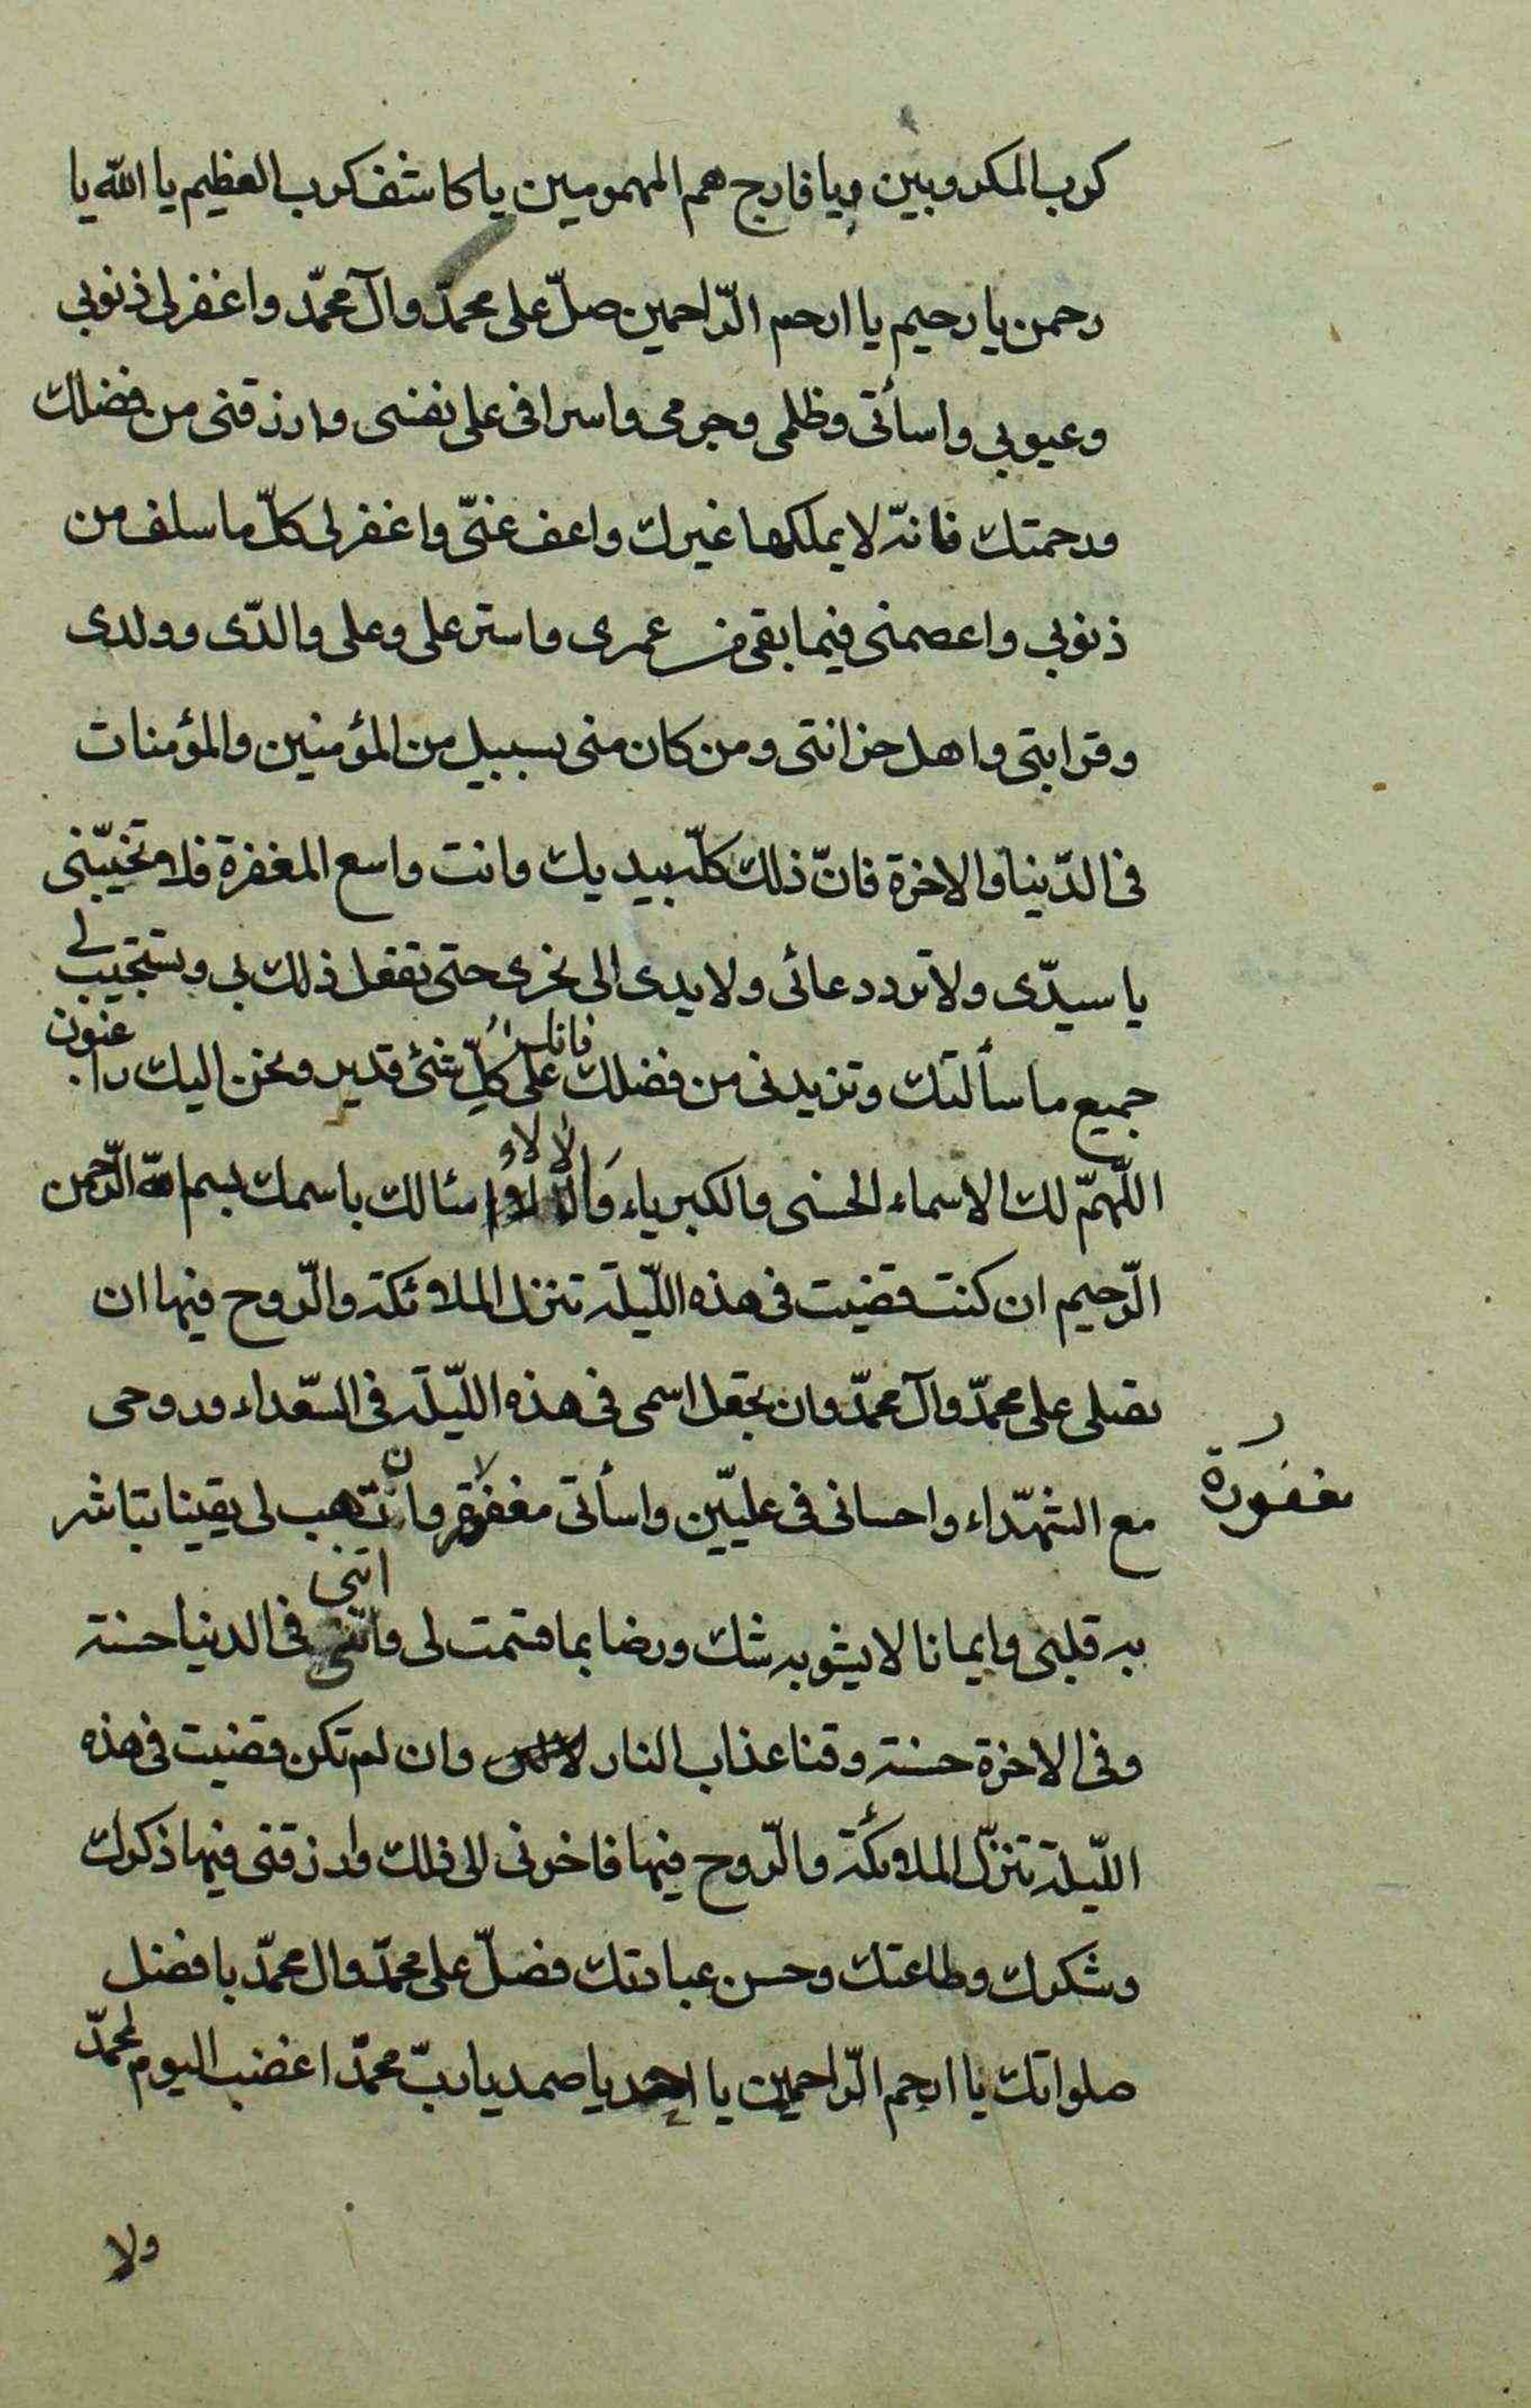 كرب المكروبين ويا فارج هم المهمومين يا كاشف كرب العظيم يا الله يا
رحمن يا رحيم يا ارحم الرّاحمين صلّ على محمّد وآل محمّد واغفر لى ذنوبي
وعيوبي واسأتى وظلمى وجرمى واسرافى على نفسى وارزقنى من فضلك
ورحمتك فانّه لا يملكها غيرك واعف عنّى واغفر لى كلّ ما سلف من
ذنوبي واعصمنى فيما بقى من عمرى واستر على وعلى والدّى وولدى
وقرابتى واهل حزانتى ومن كان منى بسبيل من المؤمنين والمؤمنات
فى الدّنيا والاخرة فانّ ذلك كلّه بيديك وانت واسع المغفرة فلا تخيّبنى
يا سيدّى ولا تردد دعائى ولا يدى الى نحرى حتى تفعل ذلك بي وتستجيب لى
جميع ما سألتك وتزيدنى من فضلك فانك على كلّ شئ قدير ونحن اليك راغبون
اللّهمّ لك الاسماء الحسنى والكبرياء والالاء اسئالك باسمك بسم الله الرّحمن
الرّحيم ان كنت قضيت فى هذه اللّيلة تنزل الملائكة والرّوح فيها ان
تصلى على محمّد وآل محمّد وان تجعل اسمى فى هذه اللّيلة فى السّعداء وروحى
مع الشهّداء واحسانى فى علييّن واسأتى مغفورة وان تهب لى يقينا تباشر
مغفورة
به قلبى وايمانا لا يشوبه شك ورضا بما قسمت لى واتنى فى الدنيا حسنة
وفى الاخرة حسنة وقنا عذاب النار وان لم تكن قضيت فى هذه
اللّيلة تنزّل الملائكة والرّوح فيها فاخرنى الى ذلك وارزقنى فيها ذكرك
وشكرك وطاعتك وحسن عبادتك فصلّ على محمّد وال محمّد بافضل
صلواتك يا ارحم الرّاحمين يا احد يا صمد يا ربّ محمّد اغضب اليوم لمحمّد
ولا